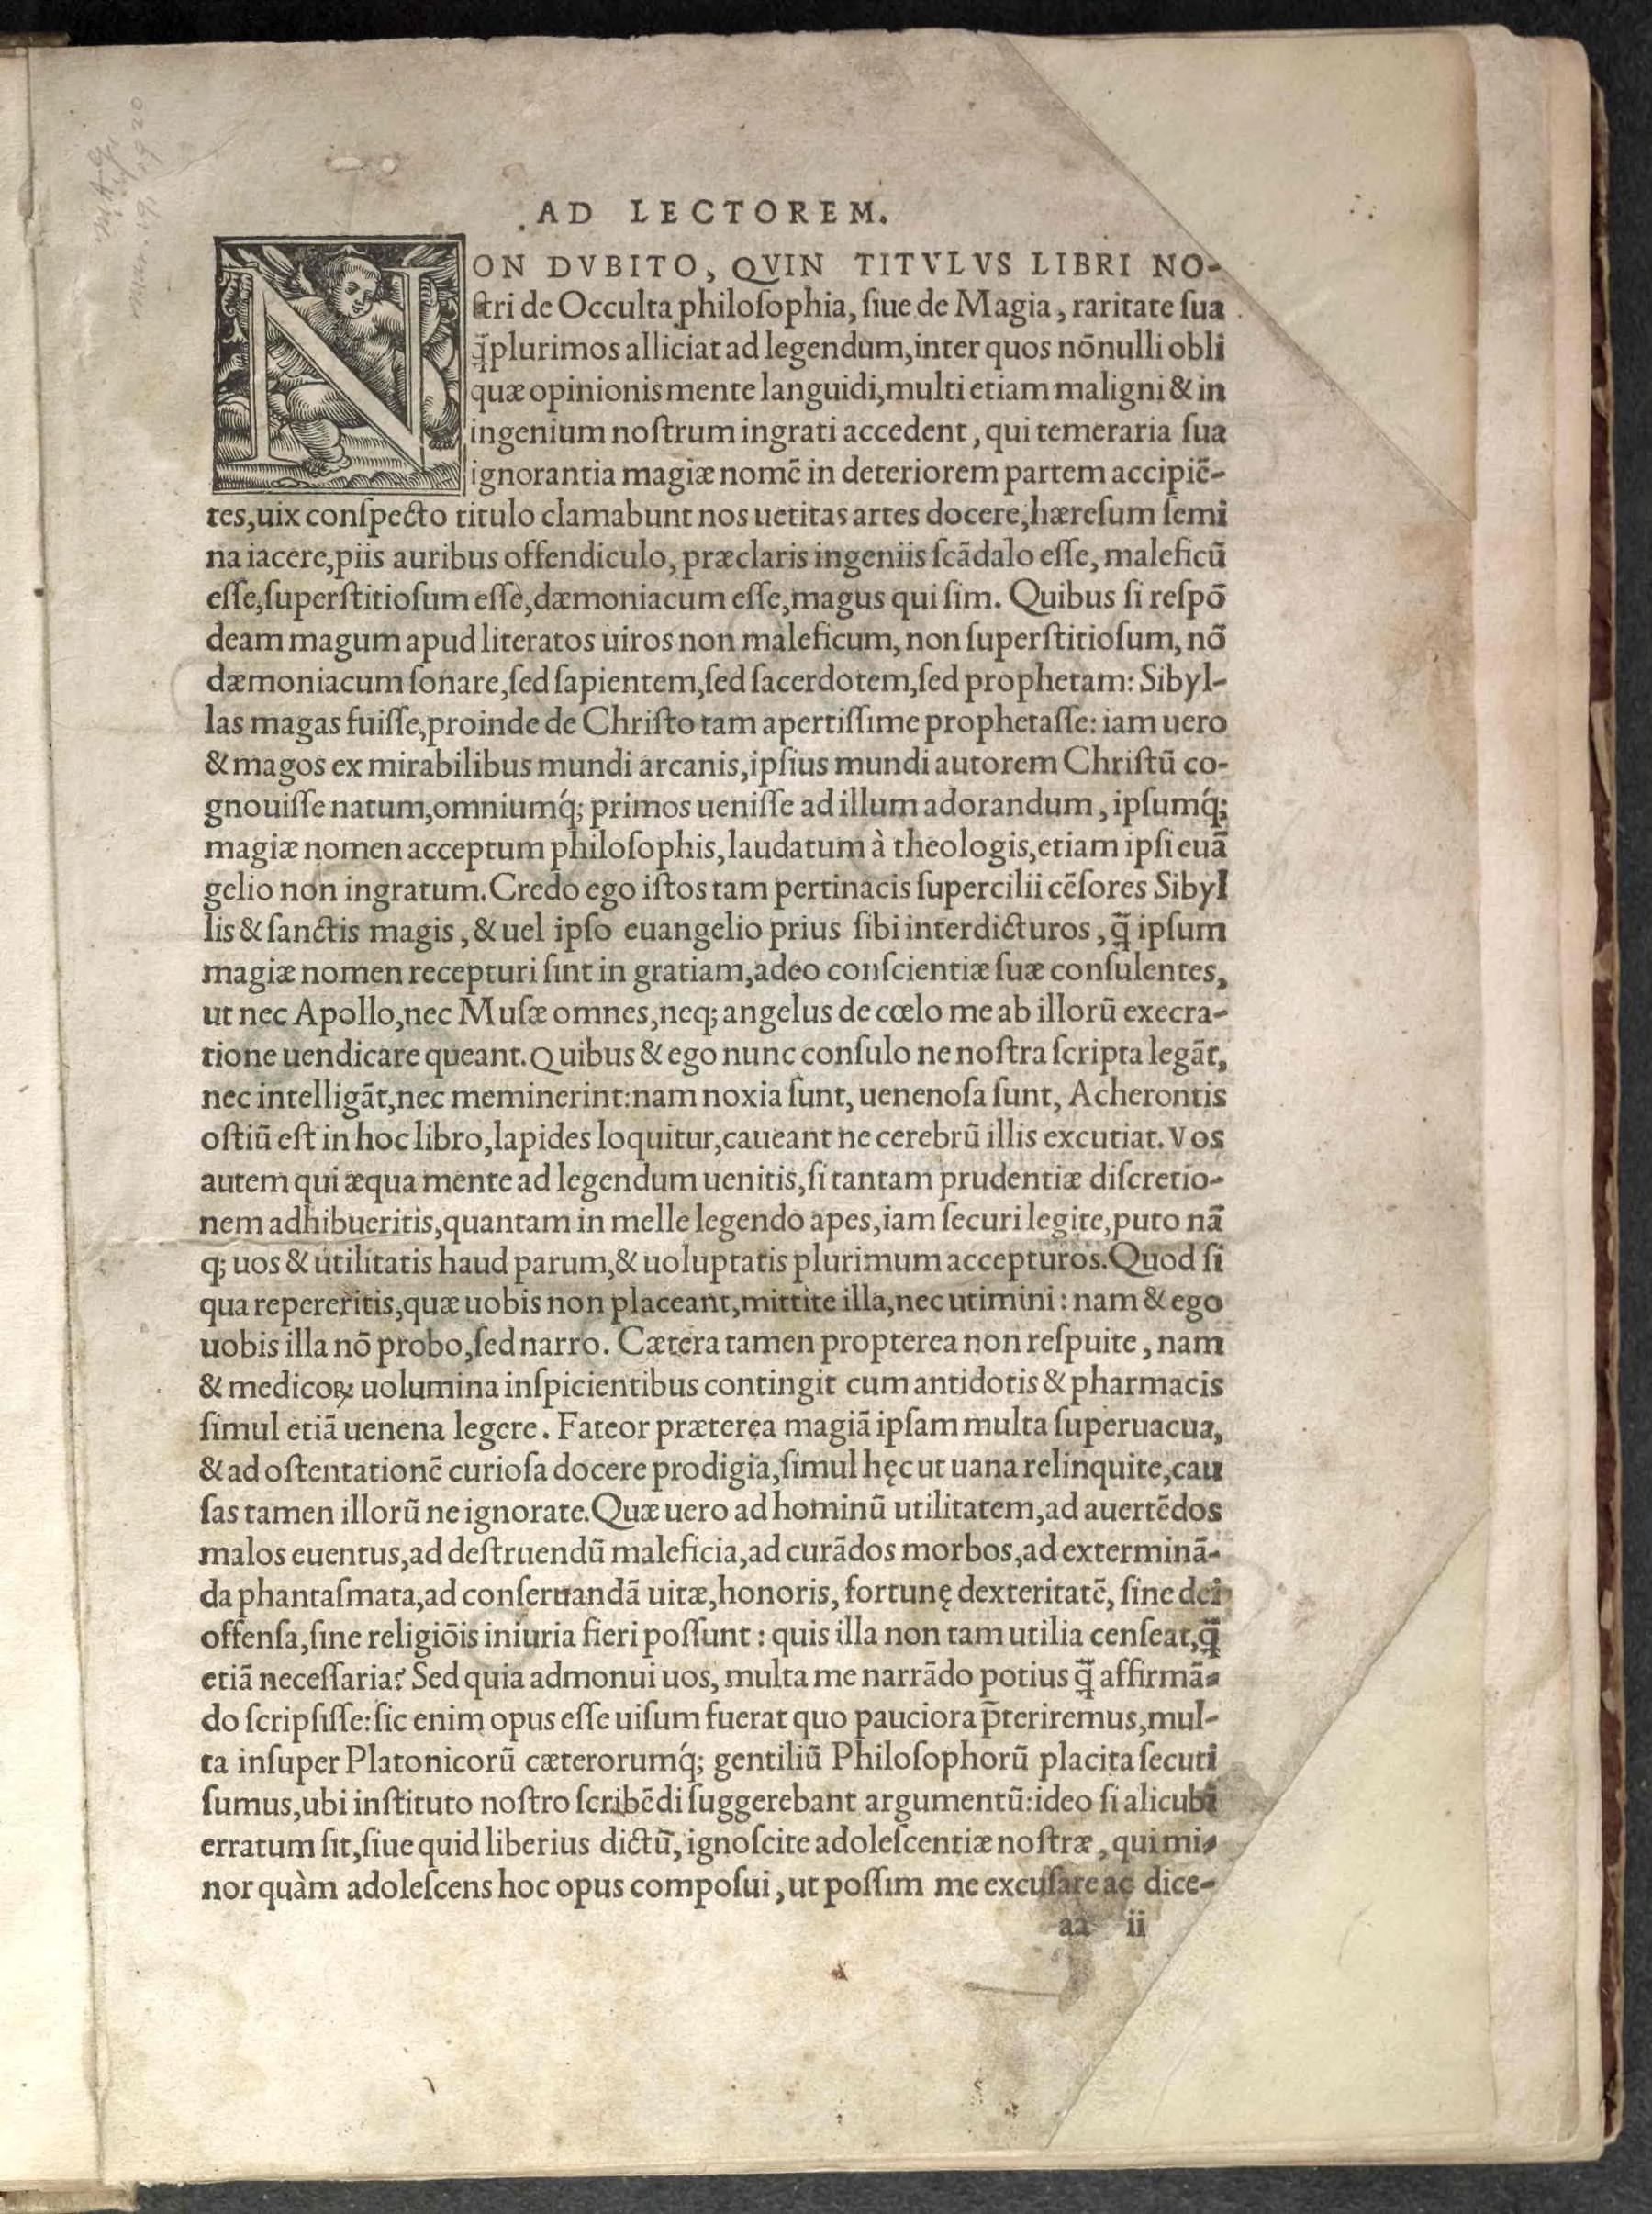 AD LECTOREM.
NON DVBITO, QVIN TITVLVS LIBRI NO-
ſtri de Occulta philoſophia, ſiue de Magia, raritate ſua
q̃plurimos alliciat ad legendum, inter quos nõnulli obli
quæ opinionis mente languidi, multi etiam maligni & in
ingenium noſtrum ingrati accedent, qui temeraria ſua
ignorantia magiæ nomẽ in deteriorem partem accipiẽ-
tes, uix conſpecto titulo clamabunt nos uetitas artes docere, hæreſum ſemi
na iacere, piis auribus offendiculo, præclaris ingeniis ſcãdalo eſſe, maleficũ
eſſe, ſuperſtitioſum eſſe, dæmoniacum eſſe, magus qui ſim. Quibus ſi reſpõ
deam magum apud literatos uiros non maleficum, non ſuperſtitioſum, nõ
dæmoniacum ſonare, ſed ſapientem, ſed ſacerdotem, ſed prophetam: Sibyl-
las magas fuiſſe, proinde de Chriſto tam apertiſſime prophetaſſe: iam uero
& magos ex mirabilibus mundi arcanis, ipſius mundi autorem Chriſtũ co-
gnouiſſe natum, omniumq́; primos ueniſſe ad illum adorandum, ipſumq́;
magiæ nomen acceptum philoſophis, laudatum à theologis, etiam ipſi euã
gelio non ingratum. Credo ego iſtos tam pertinacis ſupercilii cẽſores Sibyl
lis & ſanctis magis, & uel ipſo euangelio prius ſibi interdicturos, q̃ ipſum
magiæ nomen recepturi ſint in gratiam, adeo conſcientiæ ſuæ conſulentes,
ut nec Apollo, nec Muſæ omnes, neq; angelus de cœlo me ab illorũ execra-
tione uendicare queant. Quibus & ego nunc conſulo ne noſtra ſcripta legãt,
nec intelligãt, nec meminerint: nam noxia ſunt, uenenoſa ſunt, Acherontis
oſtiũ eſt in hoc libro, lapides loquitur, caueant ne cerebrũ illis excutiat. Vos
autem qui æqua mente ad legendum uenitis, ſi tantam prudentiæ diſcretio-
nem adhibueritis, quantam in melle legendo apes, iam ſecuri legite, puto nã
q; uos & utilitatis haud parum, & uoluptatis plurimum accepturos. Quod ſi
qua repereritis, quæ uobis non placeant, mittite illa, nec utimini: nam & ego
uobis illa nõ probo, ſed narro. Cætera tamen propterea non reſpuite, nam
& medicoꝝ uolumina inſpicientibus contingit cum antidotis & pharmacis
ſimul etiã uenena legere. Fateor præterea magiã ipſam multa ſuperuacua,
& ad oſtentationẽ curioſa docere prodigia, ſimul hęc ut uana relinquite, cau
ſas tamen illorũ ne ignorate. Quæ uero ad hominũ utilitatem, ad auertẽdos
malos euentus, ad deſtruendũ maleficia, ad curãdos morbos, ad exterminã-
da phantaſmata, ad conſeruandã uitæ, honoris, fortunę dexteritatẽ, ſine dei
offenſa, ſine religiõis iniuria fieri poſſunt: quis illa non tam utilia cenſeat, q̃
etiã neceſſaria? Sed quia admonui uos, multa me narrãdo potius q̃ affirmã-
do ſcripſiſſe: ſic enim opus eſſe uiſum fuerat quo pauciora p̃teriremus, mul-
ta inſuper Platonicorũ cæterorumq́; gentiliũ Philoſophorũ placita ſecuti
ſumus, ubi inſtituto noſtro ſcribẽdi ſuggerebant argumentũ: ideo ſi alicubi
erratum ſit, ſiue quid liberius dictũ, ignoſcite adoleſcentiæ noſtræ, qui mi-
nor quàm adoleſcens hoc opus compoſui, ut poſſim me excuſare ac dice-
aa ii